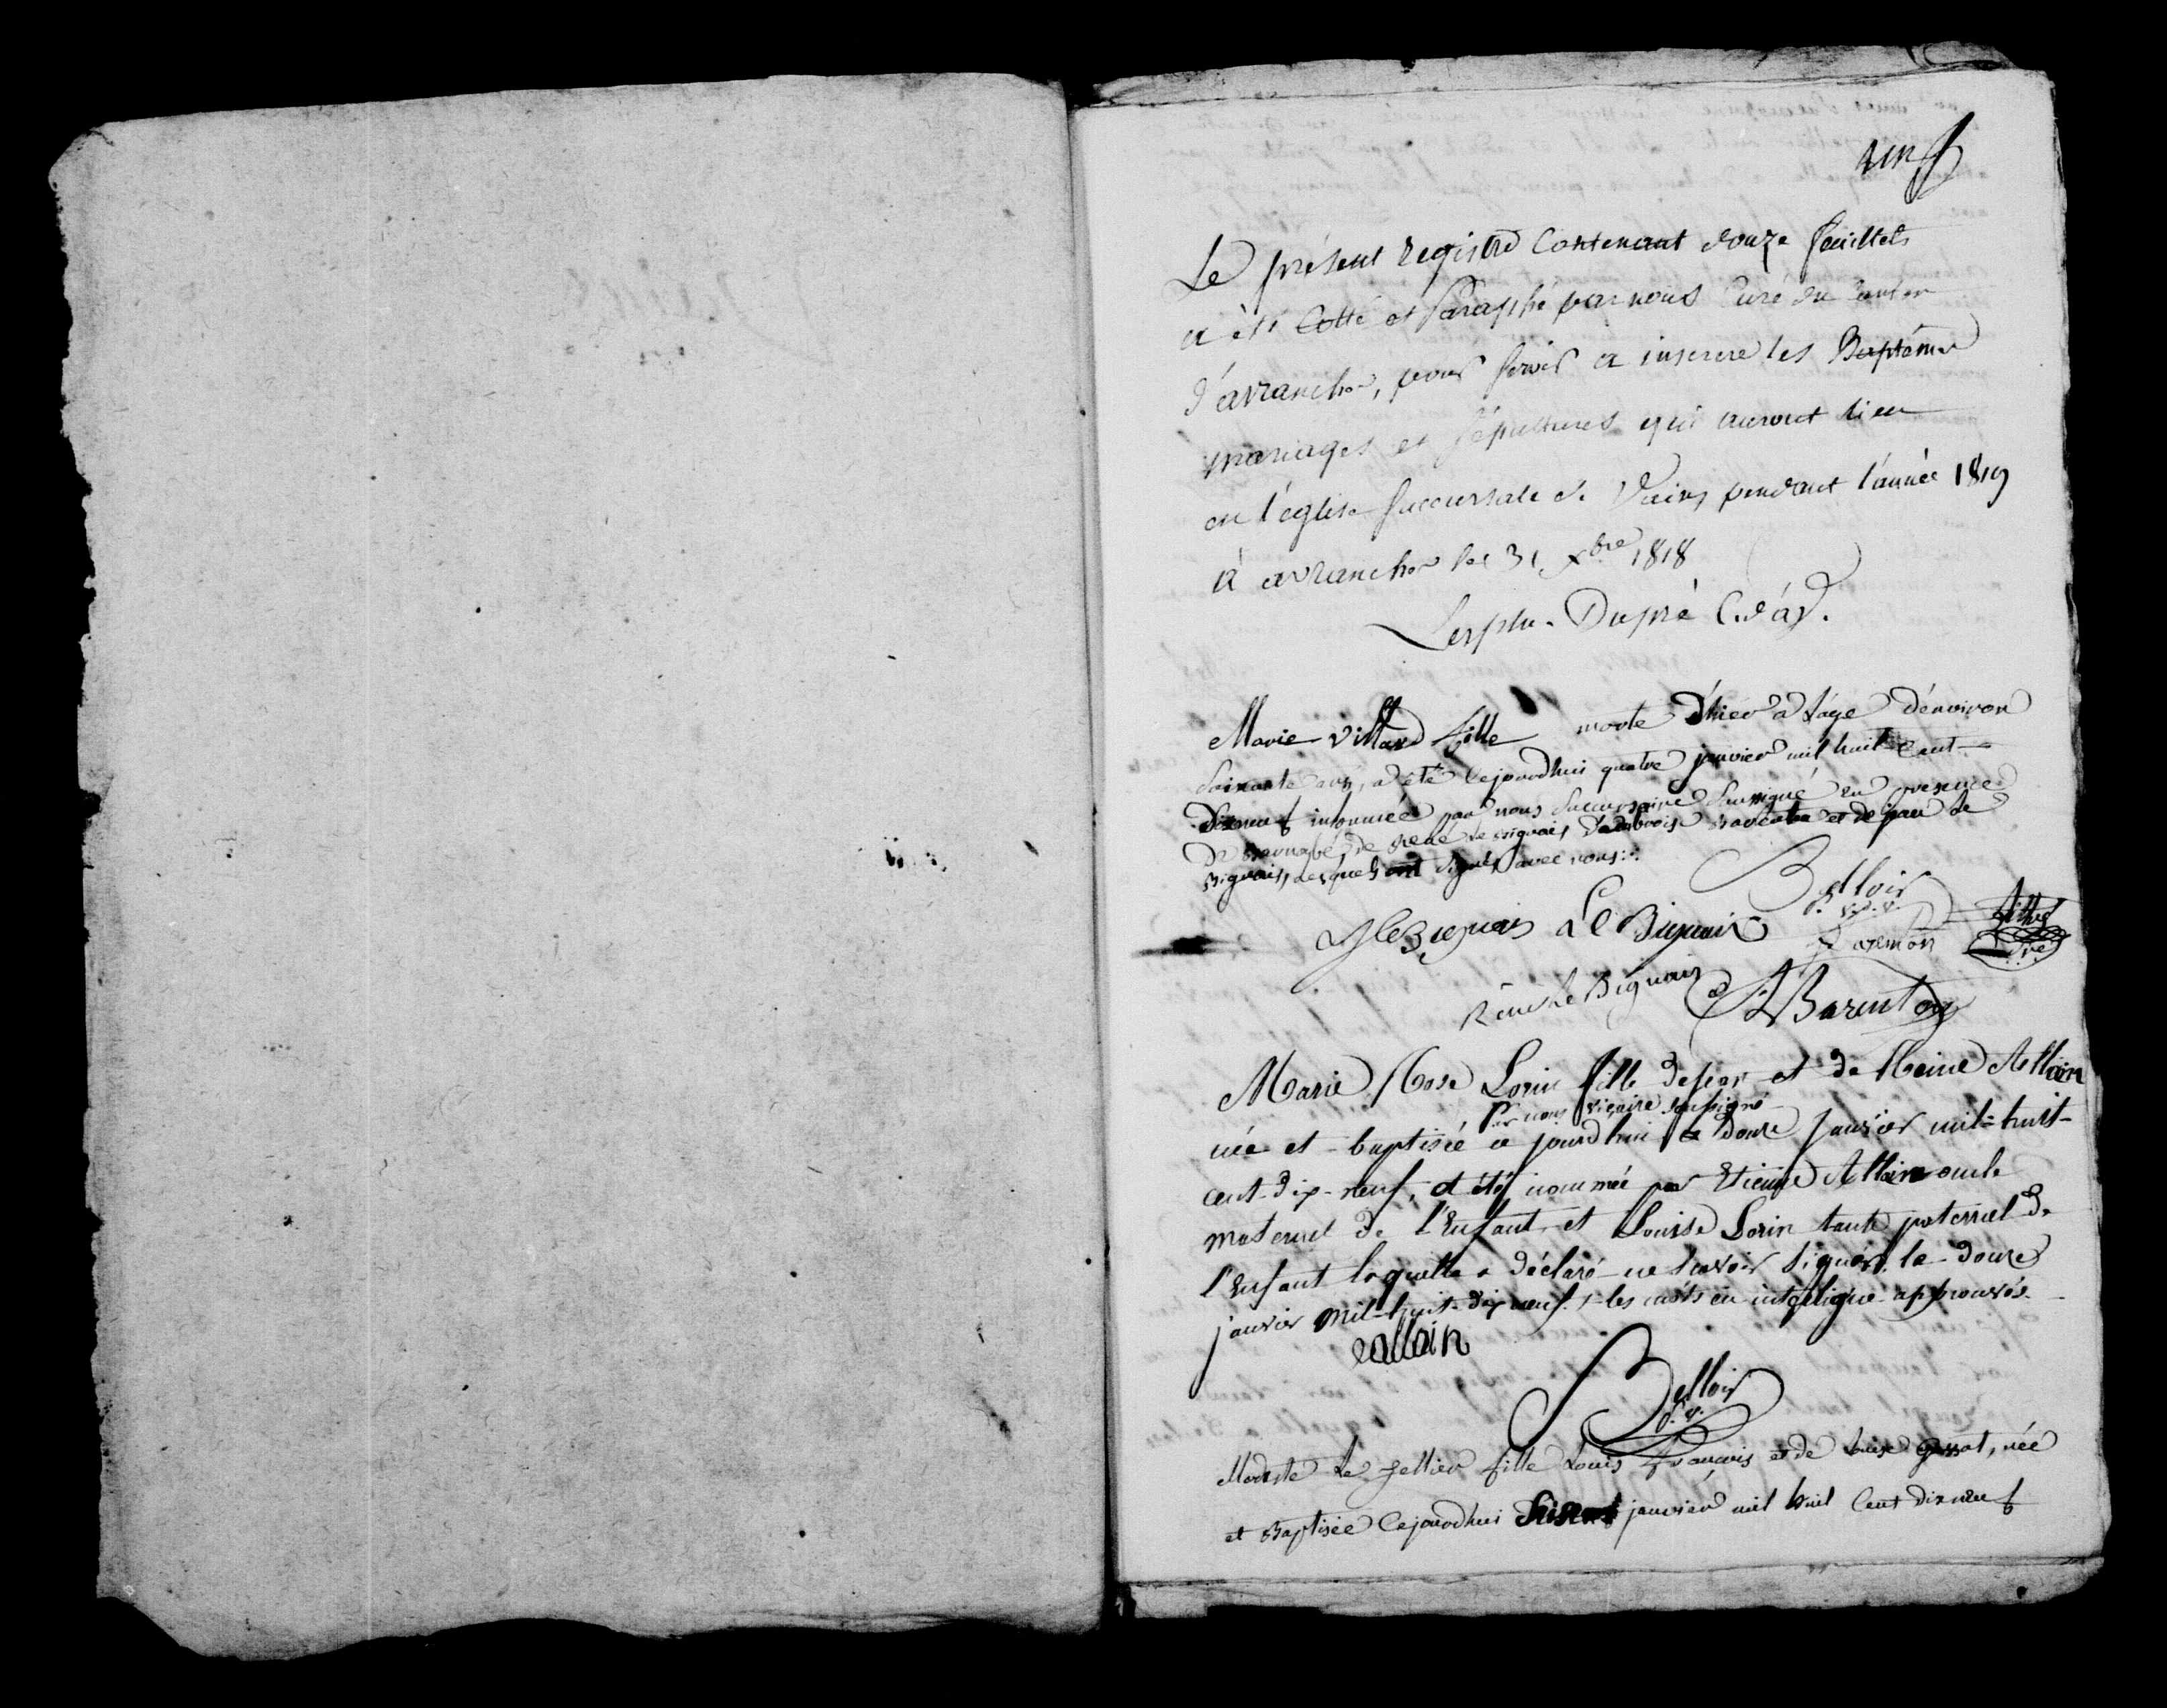 Le présent registre Contenant douze feuillets
a été Cotté et Paraphé par nous Curé du Canton
d'avranches, pour servir a inserere les Baptêmes
mariages et sépultures qui auront lieu
en l'église succursale de Vains pendant l'année 1819
à avranches le 31 Xbre 1818
Dupré C. d'av.
Marie Villard fille morte d'hier a l'age d'environ
Soixante ans, a été Cejourdhui quatre janvier mil huit Cent
Dixneuf inhumée par nous Succursaire Soussigné en presence
de René le Bignais et de jean le
Bignais, lesquels ont signés avec nous
Belloir
J le Bignais Le Bignais
P. v. d. v.
Réné le Bignais Barenton
Marie Rose Lorin fille de et de Reine Allain
Par nous vicaire soussigné
née et baptisée ce jourdhui le douze janvier mil-huit-
cent-dix-neuf, a été nommée par Etienne Allain oncle
maternel de l'Enfant et Louise Lorin tante paternel de
l'Enfant laquelle a déclaré ne savoir signer. le douze
janvier mil-huit-dix neuf. les mots en interligne approuvés
eallain
Belloir
Modeste Le fille Louis François et de Louise née
et Baptisée Cejourdhui janvier mil huit Cent dixneuf